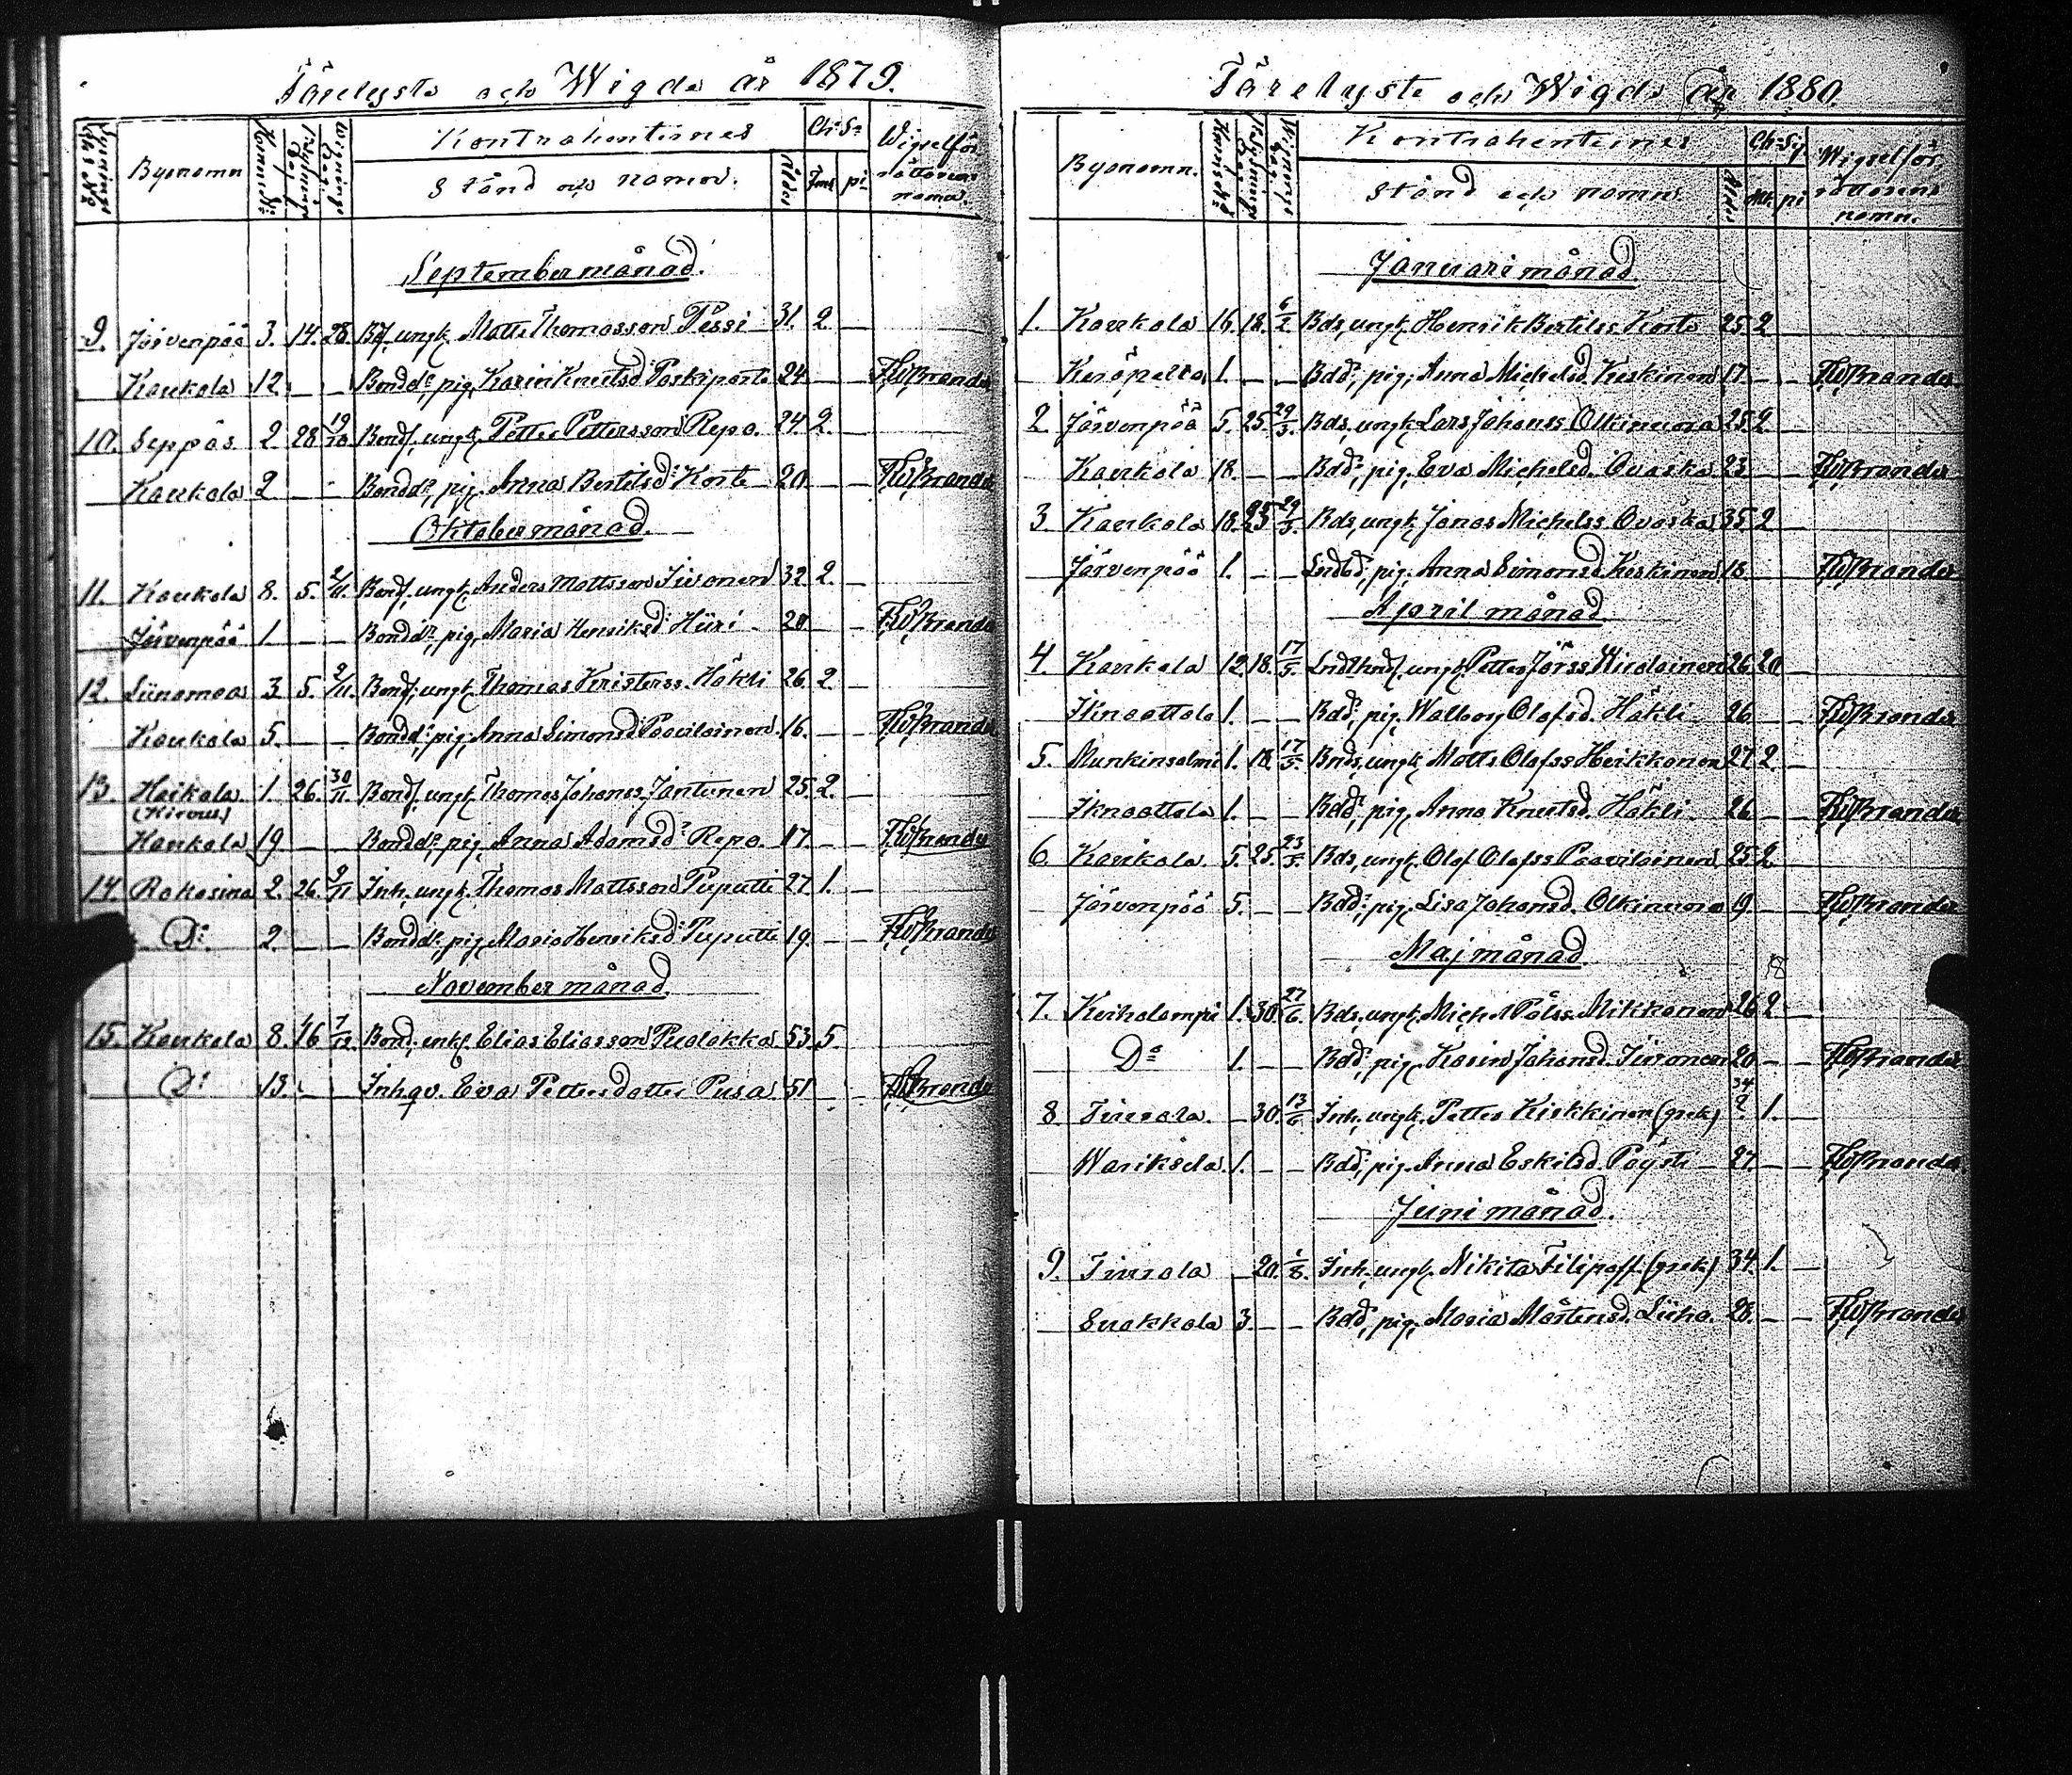 Förelyste och Wigde år 1879.
Byanamn Kontrahenternes Ch: S:
Stånd och namn. Ålder pi. Wigselförrättarens namn.
September månad.
9. Järvenpää 3. 14. 28 Bds, ungk. Matts Thomasson Pessi 31. 2.
Kaukola 12. Bondd:r, pig. Karin Knutsd:r Paskiparta 24
10. Seppäs 2 28 19/10 Bonds, ungk. Petter Pettersson Repo. 24. 2.
Kaukola 2 Bondd:r, pig. Anna Bertilsd:r Korte 20
Oktober månad.
11. Kaukola 8. 5. 2/11. Bonds, ungk. Anders Mattsson Iivonen 32. 2.
Järvenpää 1. Bondd:r, pig. Maria Henriksd:r Hiiri 20
12. Liinamaa 3. 5. 2/11. Bonds, ungk. Thomas Kristerss. Häkli 26. 2.
Kaukola 5. Bondd:r, pig. Anna Simonsd:r Paavilainen. 16.
13. Heikola 1. 26. 30/11. Bonds, ungk. Thomas Johanss. Jantunen 25. 2.
(Hirvus)
Kaukola 19 Bondd:r, pig. Anna Adamsd:r Repo. 17.
14. Rakosina 2. 26. 9/11 Inh., ungk. Thomas Mattsson Puputti 27. 1.
D:o 2. Bondd:r, pig. Maria Henriksd:r Puputti 19.
November månad.
15. Kaukola 8. 16 7/12. Bond, enkl. Elias Eliasson Pulakka 53. 5.
D:o 13. Inhqv. Eva Pettersdotter Pusa 51
Förelyste och Wigde År 1880.
Byanamn. Kontrahenternes Ch:
Stånd och namn. Ålder pi Wigselförrättarens namn.
Januari månad
1. Kaukola 16. 18. 6/2 Bds, ungk. Henrik Bertilss. Korte 25 2
1. Bdd:r, pig. Anna Michelsd. Keskinen 17
2 Järvenpää 5. 25. 29/3. Bds, ungk. Lars Johanss. Olkinuora 25 2
Kaukola 18. Bdd:r, pig. Eva Michelsd. Ovaska 23
3 Kaukola 18. 25 29/3. Bds, ungk. Jonas Michelss. Ovaska 35 2
Järvenpää 1. pig. Anna Simonsd. Keskinen 18
April månad
4. Kaukola 12. 18. 17/5. ungk. Petter Jörss. Nicolainen 26
Iknaottola 1. Bdd:r, pig. Walborg Olofsd. Häkli 26
5. Munkinsalmi 1. 18. 17/5. Bnds, ungk. Matts Olofss. Heikkonen 27 2
Iknaottola 1. Bdd:r, pig. Anna Knutsd. Häkli 26
6 Kaukola 5. 25. 23/5. Bds, ungk. Olof Olofss. Paavilainen 25 2
Järvenpää 5. Bdd:r, pig. Lisa Johansd. Olkinuora 19
Maj månad
7. Koikolampi 1. 30. 27/6. Bds, ungk. Michel Pålss. Mikkonen 26 2
D:o 1. Bdd, pig. Karin Johansd. Iivonen 20
8 30. 13/6. Inh., ungk. Petter Kirkkinen (grek) 34 1.
Warikselä. 1. Bdd, pig. Anna Eskilsd. Pöysti 27
Juni månad.
9. 20. 1/8. Inh., ungk. Nikita Filipoff (grek) 34. 1.
Suokkola 3. Bdd, pig. Maria Mårtensd. Liiha. 28.